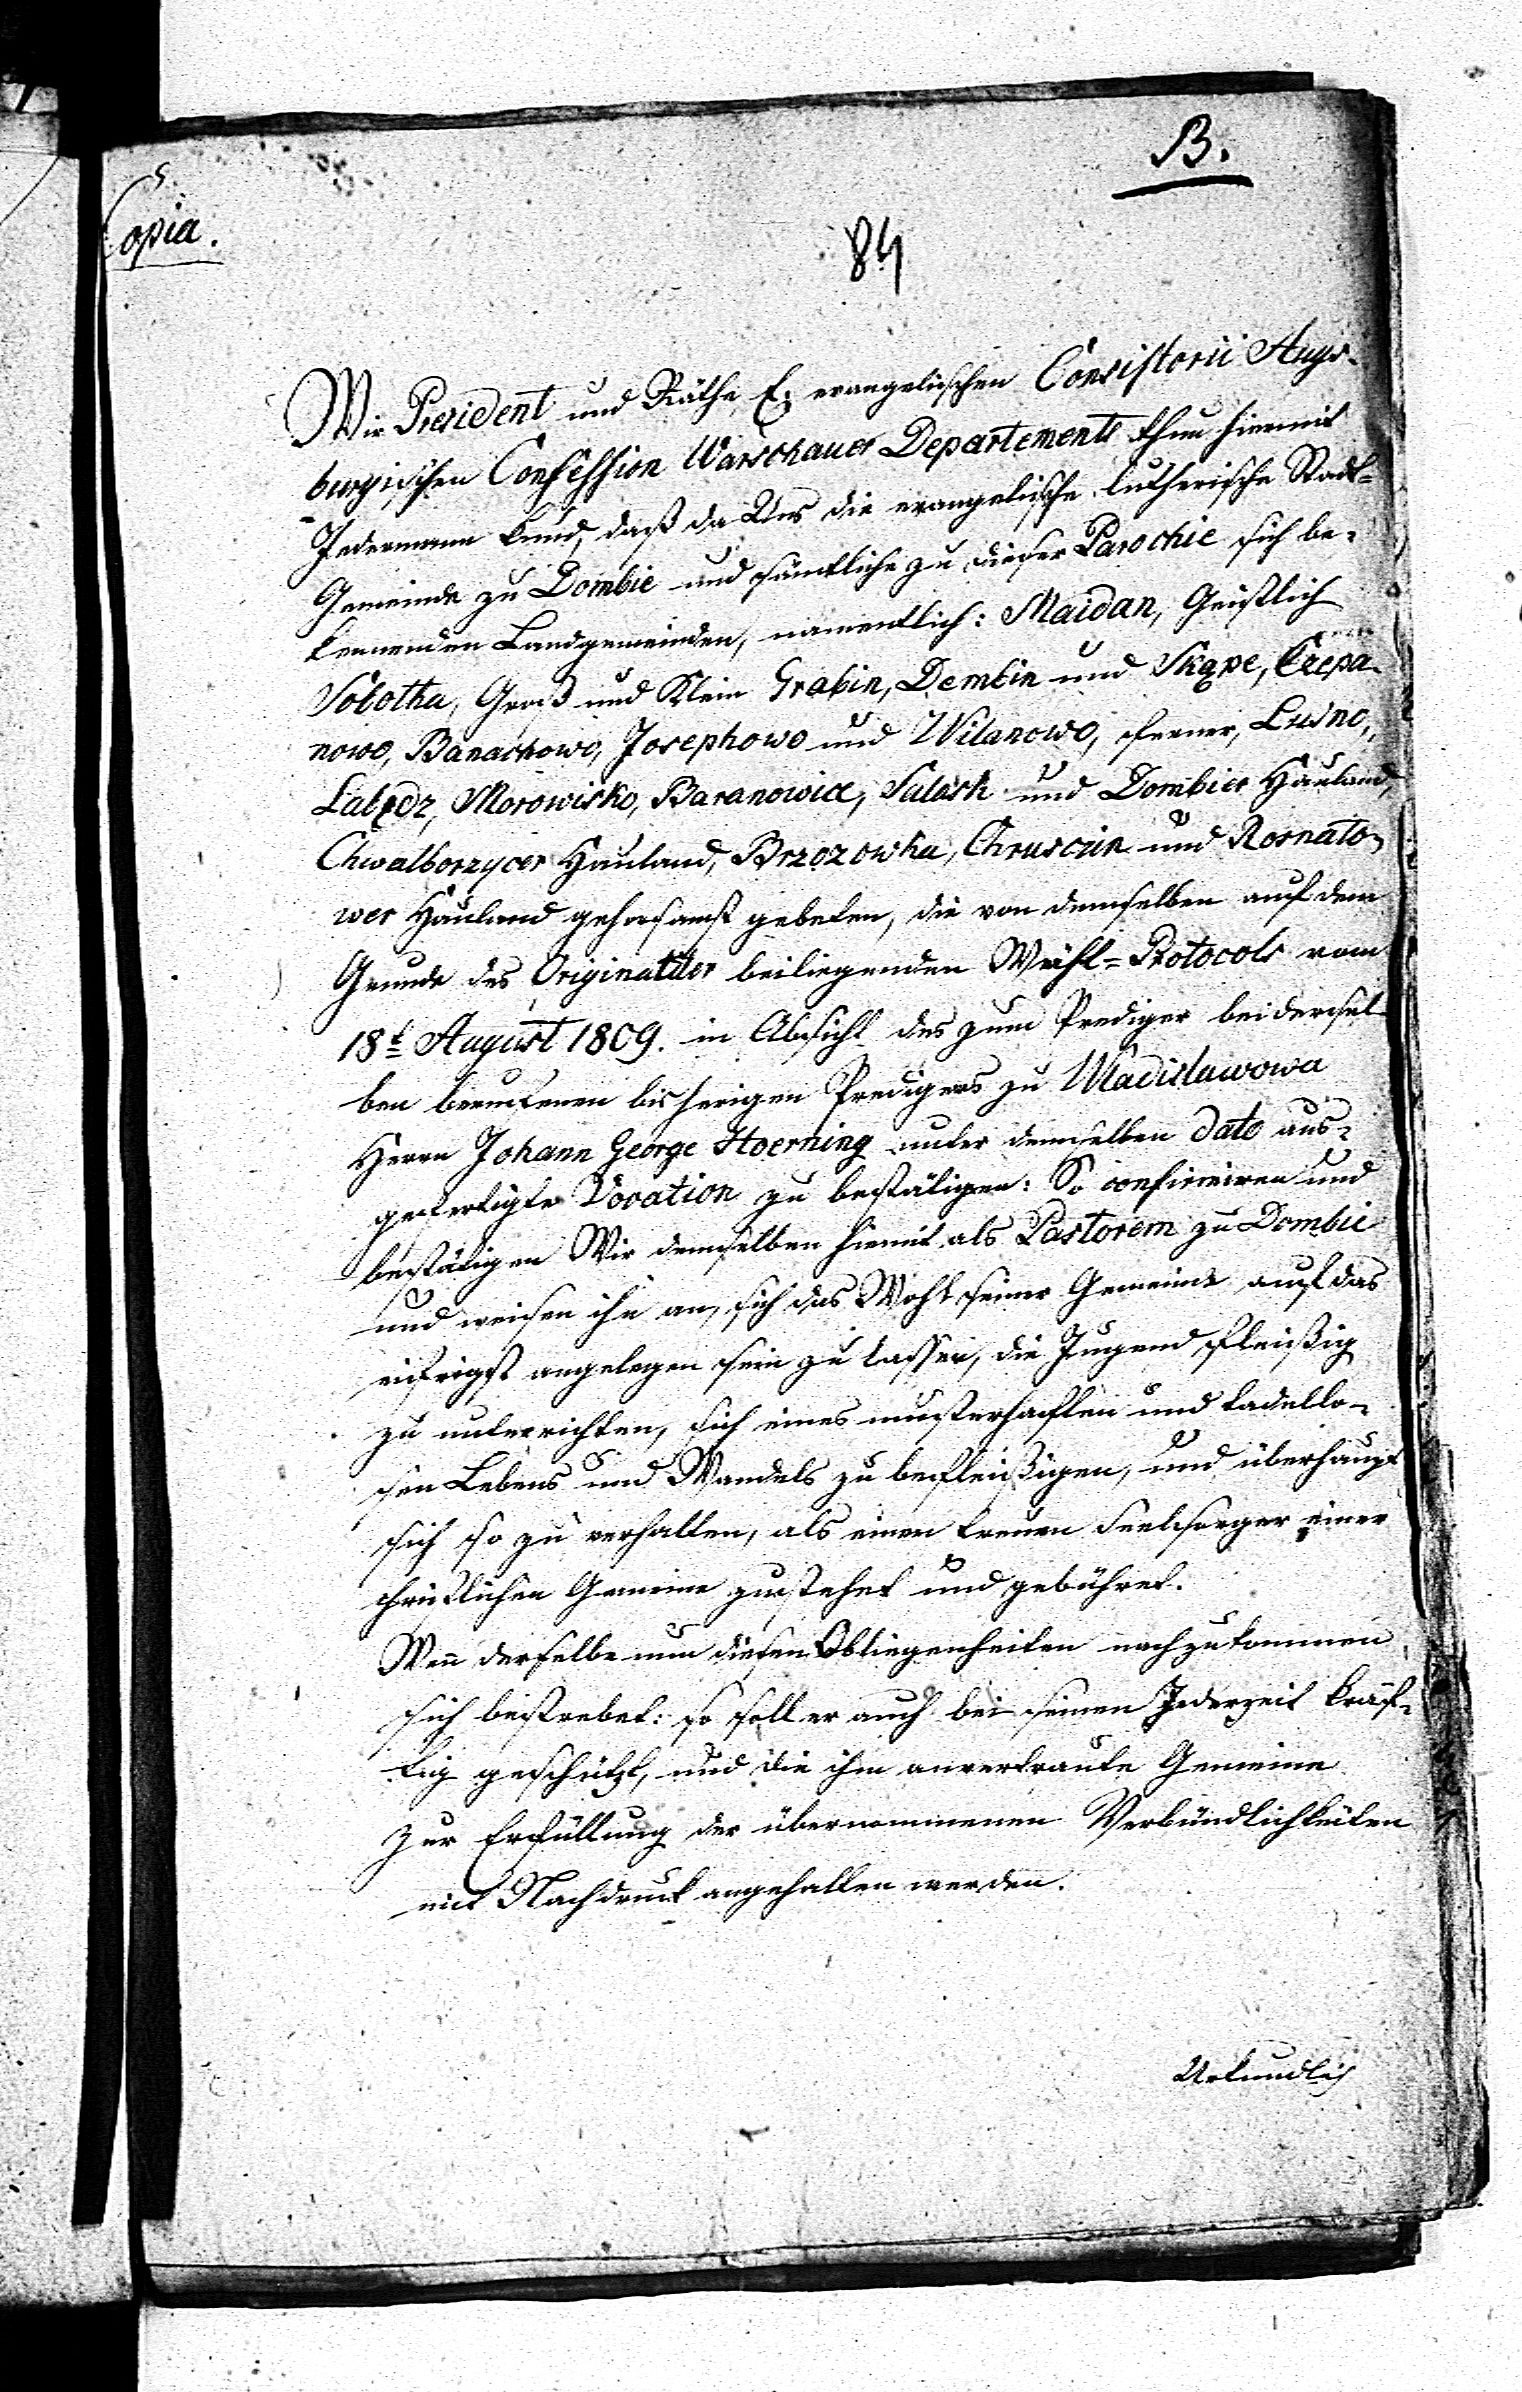 B.
Copia.
84
Wir President und Räthe E. evangelischen Consistorii Augs-
burgischen Confession Warschauer Departements thun hiermit
Jedermann kund, daß da Uns die evangelische lutherische Stadt-
Gemeinde zu Dombie und sämtliche zu dieser Parochie sich be-
kennenden Landgemeinden, namentlich: Maidan, Geistlich
Sobotka, Groß und Klein Grabin, Dembin und Skąpe, Czepa-
nowo, Banachowo, Josephowo und Wilanowo, ferner, Lusno,
Łabędz, Morowisko, Baranowice, Salesch und Dombier Hauland,
Chwalborzycer Hauland, Brzozowka, Chruscin und Rosnato-
wer Hauland gehorsamst gebeten, die von demselben auf dem
Grunde des Originaliter beiliegenden Wahl-Protocols vom
18t August 1809. in Absicht des zum Prediger bei dersel-
ben berufenen bisherigen Predigers zu Wladislawowa
Herrn Johann George Hoerning unter demselben dato aus-
gefertigte Vocation zu bestätigen: So confirmiren und
bestätigen Wir demselben hiemit als Pastorem zu Dombie
und weisen ihn an, sich das Wohl seiner Gemeinde auf das
eifrigst angelegen sein zu lassen, die Jugend fleißig
zu unterrichten, sich eines musterhaften und tadello-
sen Lebens und Wandels zu befleißigen, und überhaupt
sich so zu verhalten, als einen treuen Seelsorger einer
christlichen Gemeine zustehet und gebühret.
Wenn derselbe nun diesen Obliegenheiten nachzukommen
sich bestrebet: so soll er auch bei seinen Jederzeit kräf-
tig geschützt, und die ihm anvertraute Gemeine
zur Erfüllung der übernommenen Verbündlichkeiten
mit Nachdruck angehalten werden.
Urkundlich